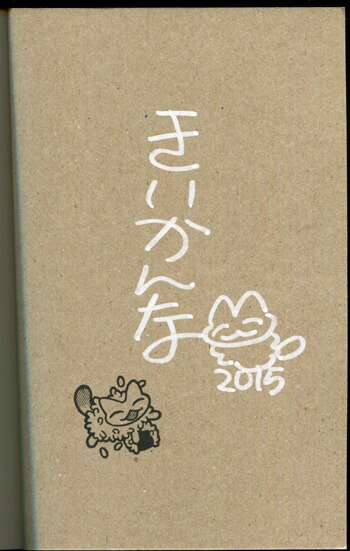 きいかんな
2015